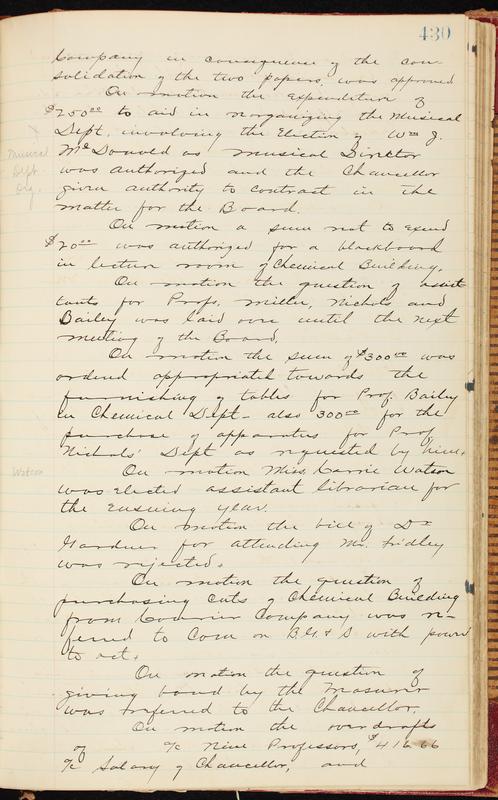 430
Company in consequence of the con-
solidation of the two papers, was approved
On motion the expenditure of
$250.00 to aid in reorganizing the Musical
Dept. involving the Election of Wm J.
McDonald as musical Director
was authorized and the Chancellor
given authority to contract in the
matter for the Board.
Musical
Dept.
Org.
On motion a sum not to exceed
$20.00 was authorized for a blackboard
in lecture room of Chemical Building.
On motion the question of assist
tants for Profs. Miller, Nichols and
Bailey was laid over until the next
meeting of the Board.
On motion the sum of $300.00 was
ordered appropriated towards the
furnishing of tables for Prof. Bailey
in Chemical Dept - also 300.00 for the
purchase of apparatus for Prof
Nichols' Dept as requested by him.
Watson
On motion Miss Carrie Watson
was elected assistant librarian for
the ensuing year.
On motion the bill of Dr
Gardner for attending Mr. Lidley
was rejected.
On motion the question of
purchasing cuts of Chemical Building
from Courier Company was re-
ferred to Com on B.G. & S with power
to act.
On motion the question of
giving bond by the treasurer
was referred to the Chancellor.
On motion the overdrafts
of a/c Nine Professors, $416.66
a/c Salary of Chancellor, and